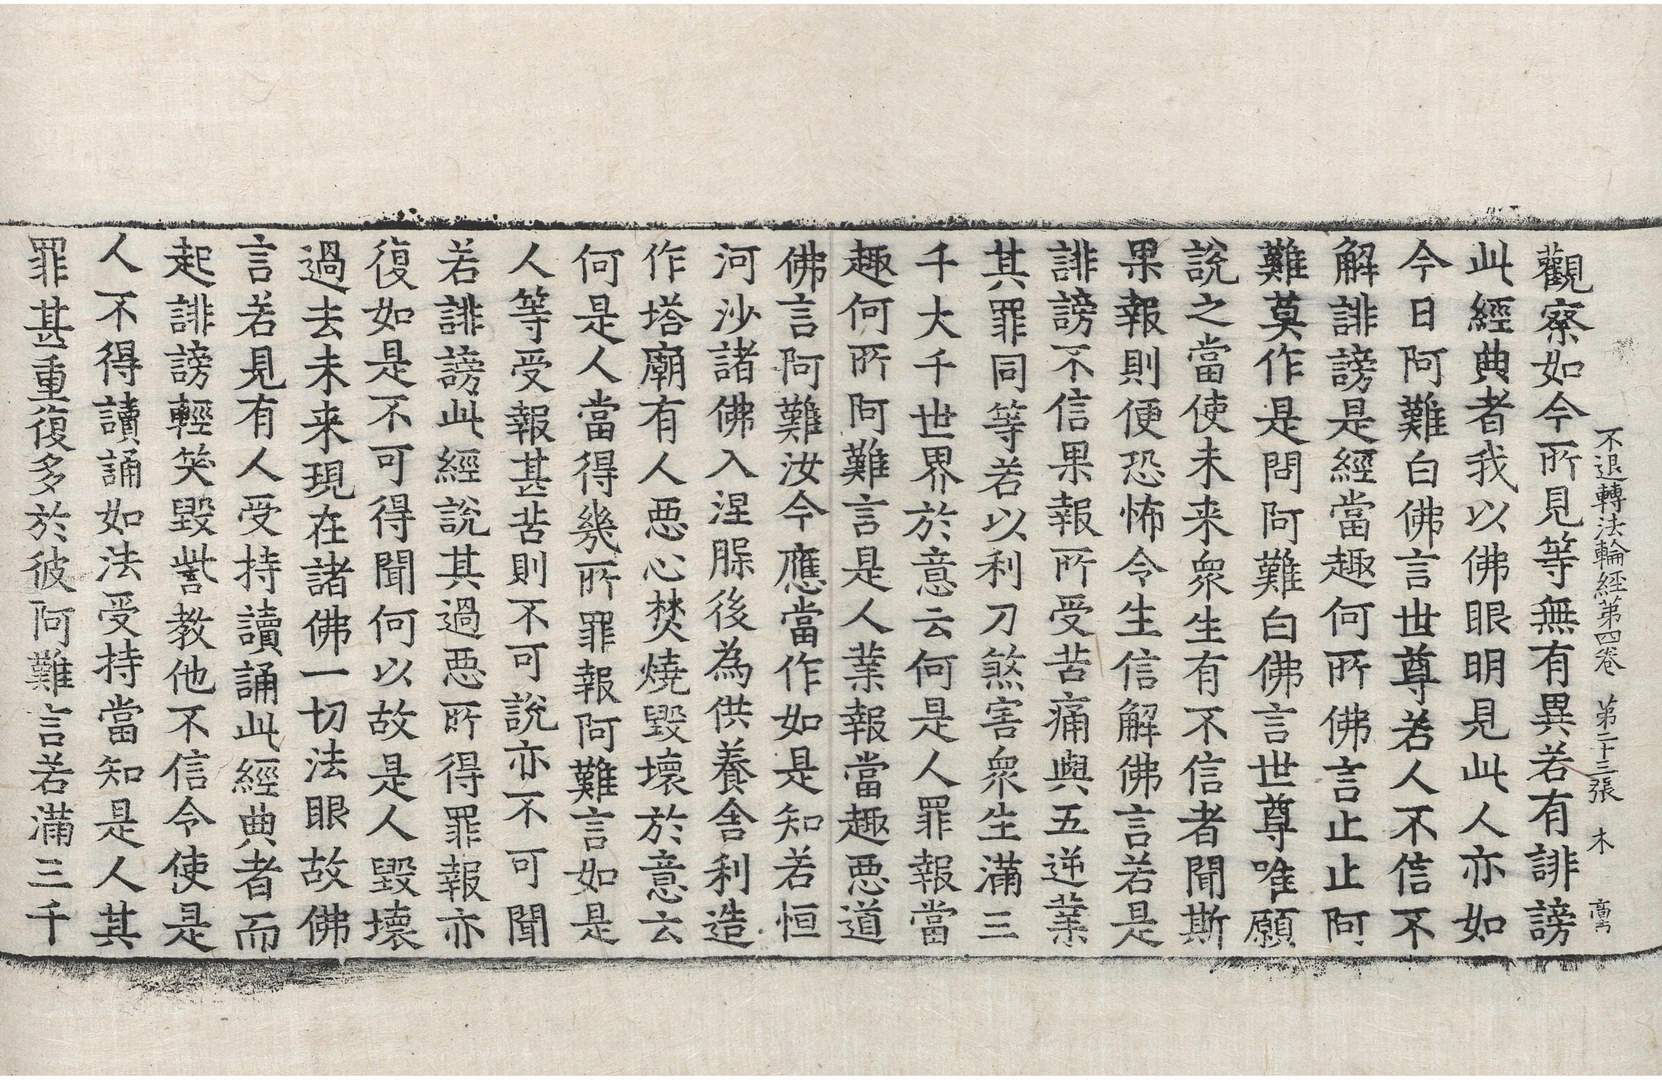 不退轉法輪經第四卷　第二十三張　木
觀察如今所見等無有異若有誹謗
此經典者我以佛眼明見此人亦如
今日阿難白佛言世尊若人不信不
解誹謗是經當趣何所佛言止止阿
難莫作是問阿難白佛言世尊唯願
說之當使未来衆生有不信者聞斯
果報則便恐怖令生信解佛言若是
誹謗不信果報所受苦痛與五逆業
其罪同等若以利刀煞害衆生滿三
千大千世界於意云何是人罪報當
趣何所阿難言是人業報當趣惡道
佛言阿難汝今應當作如是知若恒
河沙諸佛入涅槃後為供養舍利造
作塔廟有人惡心焚燒毀壞於意云
何是人當得幾所罪報阿難言如是
人等受報甚苦則不可說亦不可聞
若誹謗此經說其過惡所得罪報亦
復如是不可得聞何以故是人毀壞
過去未来現在諸佛一切法眼故佛
言若見有人受持讀誦此經典者而
起誹謗輕笑毀呰教他不信令使是
人不得讀誦如法受持當知是人其
罪甚重復多於彼阿難言若滿三千